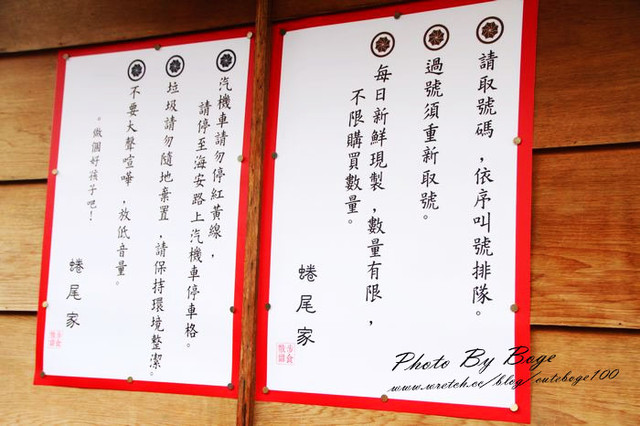 請取號碼，依序叫號排隊。
過號須重新取號。
每日新鮮現製，數量有限，
不限購買數量。
蜷尾家
汽機車請勿停紅黃線，
請停至海安路上汽機車停車格。
垃圾請勿隨地棄置，請保持環境整潔。
不要大聲喧嘩，放低音量。
。做個好孩子吧！
蜷尾家
Photo By Boge
www.wretch.cc/blog/cuteboge100